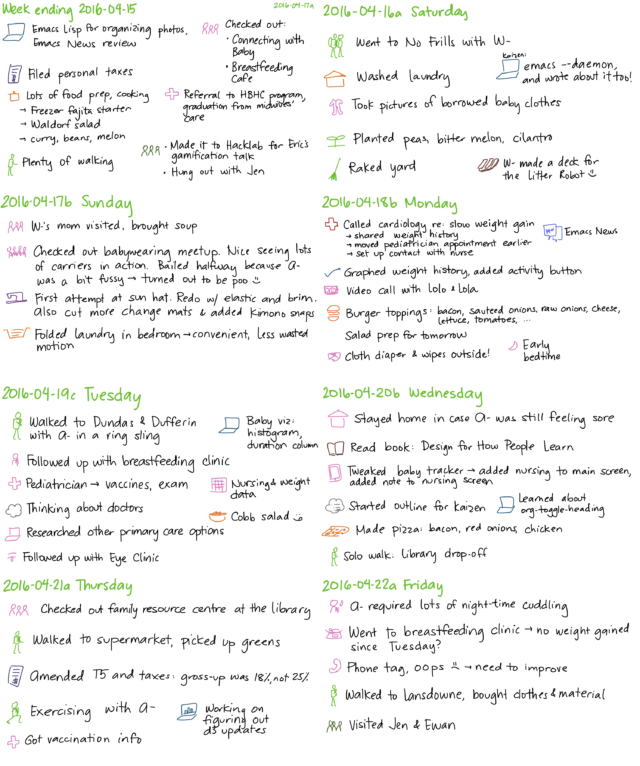 Week ending 2016-04-15
2016-04-17a
Emacs Lisp for organizing photos,
Emacs News review
Checked out:
• Connecting with
Baby
• Breastfeeding
Cafe
Filed personal taxes
Lots of food prep, cooking
→ Freezer fajita starter
→ Waldorf salad
→ curry, beans, melon
Referral to HBHC program,
graduation from midwives'
care
Plenty of walking
• Made it to Hacklab for Eric's
gamification talk
• Hung out with Jen
2016-04-16a Saturday
Went to No Frills with W-
Washed laundry
Kaizen:
emacs --daemon,
and wrote about it too!
Took pictures of borrowed baby clothes
Planted peas, bitter melon, cilantro
Raked yard
W- made a deck for
the Litter Robot
2016-04-17b Sunday
W-'s mom visited, brought soup
Checked out babywearing meetup. Nice seeing lots
of carriers in action. Bailed halfway because A-
was a bit fussy → turned out to be poo
First attempt at sun hat. Redo w/ elastic and brim.
Also cut more change mats & added kimono snaps
Folded laundry in bedroom → convenient, less wasted
motion
2016-04-18b Monday
Called cardiology re: slow weight gain
→ shared weight history
→ moved pediatrician appointment earlier
→ set up contact with nurse
Emacs News
Graphed weight history, added activity button
Video call with Lolo & Lola
Burger toppings: bacon, sauteed onions, raw onions, cheese,
lettuce, tomatoes, ...
Salad prep for tomorrow
Cloth diaper & wipes outside!
Early
bedtime
2016-04-19c Tuesday
Walked to Dundas & Dufferin
with A- in a ring sling
Baby viz:
histogram,
duration column
Followed up with breastfeeding clinic
Pediatrician → vaccines, exam
Nursing & weight
data
Thinking about doctors
Cobb salad
Researched other primary care options
Followed up with Eye Clinic
2016-04-20b Wednesday
Stayed home in case A- was still feeling sore
Read book: Design for How People Learn
Tweaked baby tracker → added nursing to main screen,
added note to nursing screen
Started outline for kaizen
Learned about
org-toggle-heading
Made pizza: bacon, red onions, chicken
Solo walk: Library drop-off
2016-04-21a Thursday
Checked out family resource centre at the library
Walked to supermarket, picked up greens
Amended T5 and taxes: gross-up was 18%, not 25%
Exercising with A-
Working on
figuring out
d3 updates
Got vaccination info
2016-04-22a Friday
A- required lots of night-time cuddling
Went to breastfeeding clinic → no weight gained
since Tuesday?
Phone tag, oops → need to improve
Walked to Lansdowne, bought clothes & material
Visited Jen & Ewan